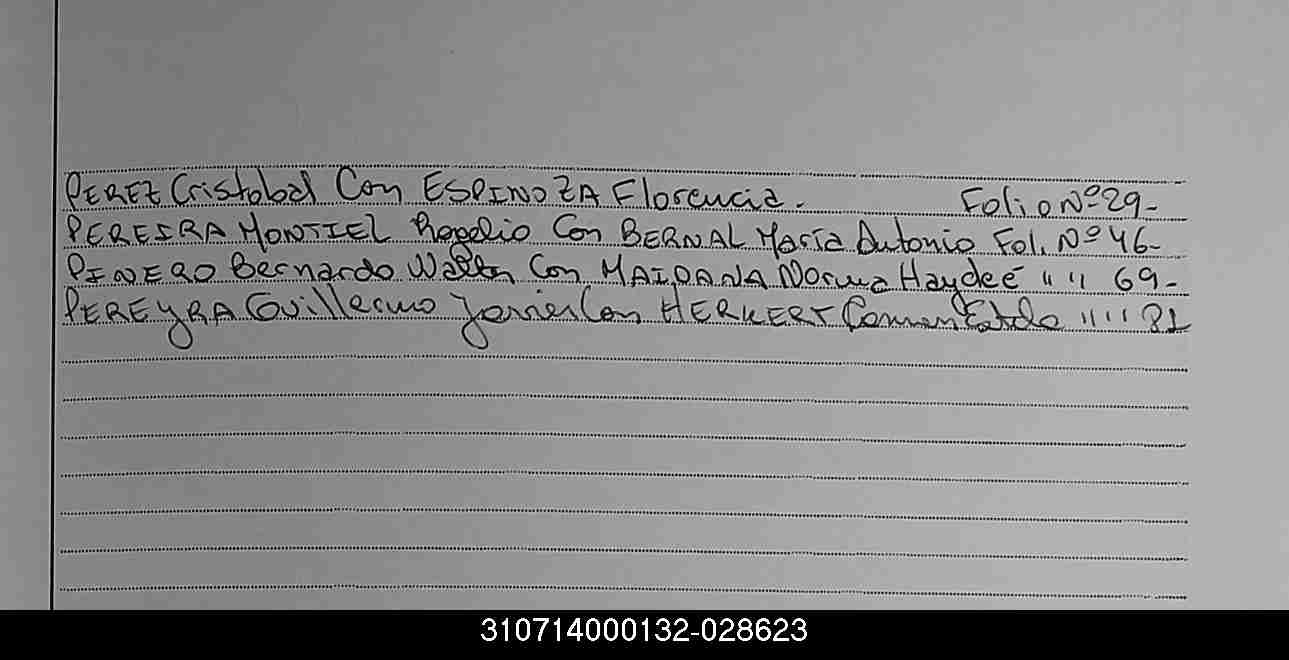 PEREZ Cristobal Con ESPINOZA Florencia. Folio Nº 29-
PEREIRA MONTIEL Rogelio Con BERNAL María Antonio Fol. Nº 46-
PINERO Bernardo Walter Con MAIDANA Norma Haydeé " " 69-
PEREYRA Guillermo Javier Con HERKERT " " 81
310714000132-028623